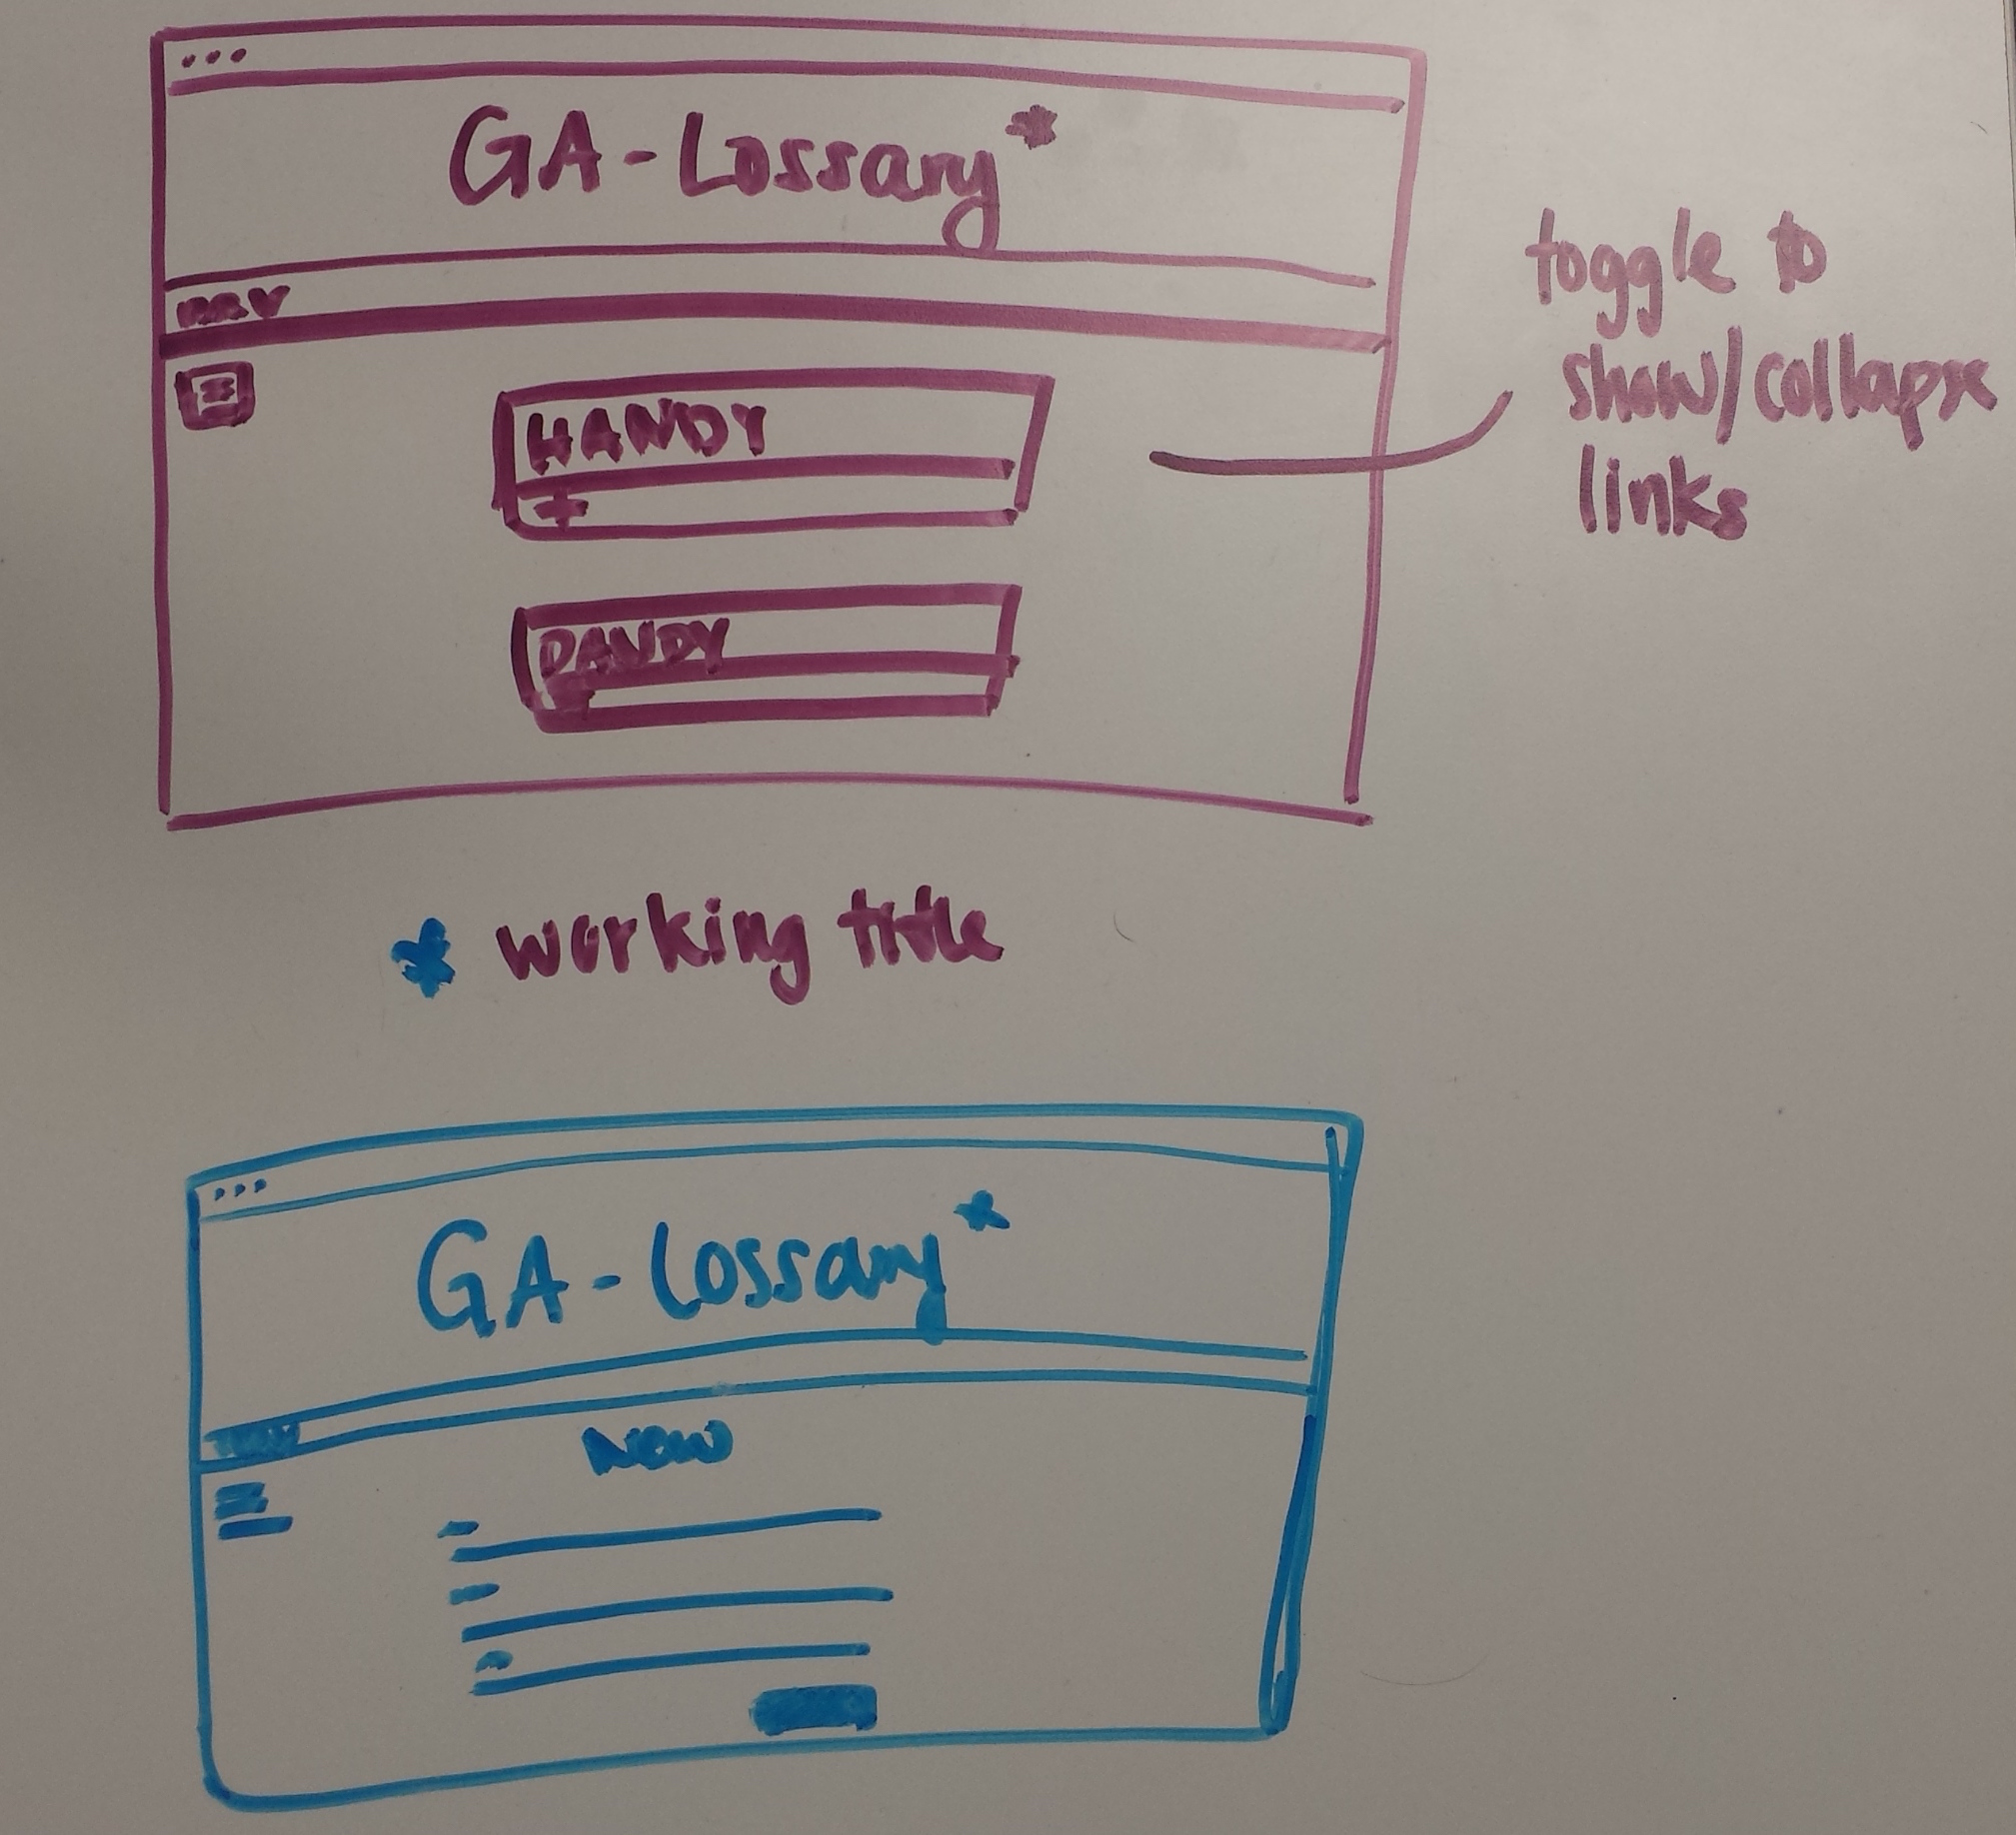 GA-Lossary*
NAV
HANDY
+
DANDY
+
toggle to
show/collapse
links
* working title
GA-Lossary*
New